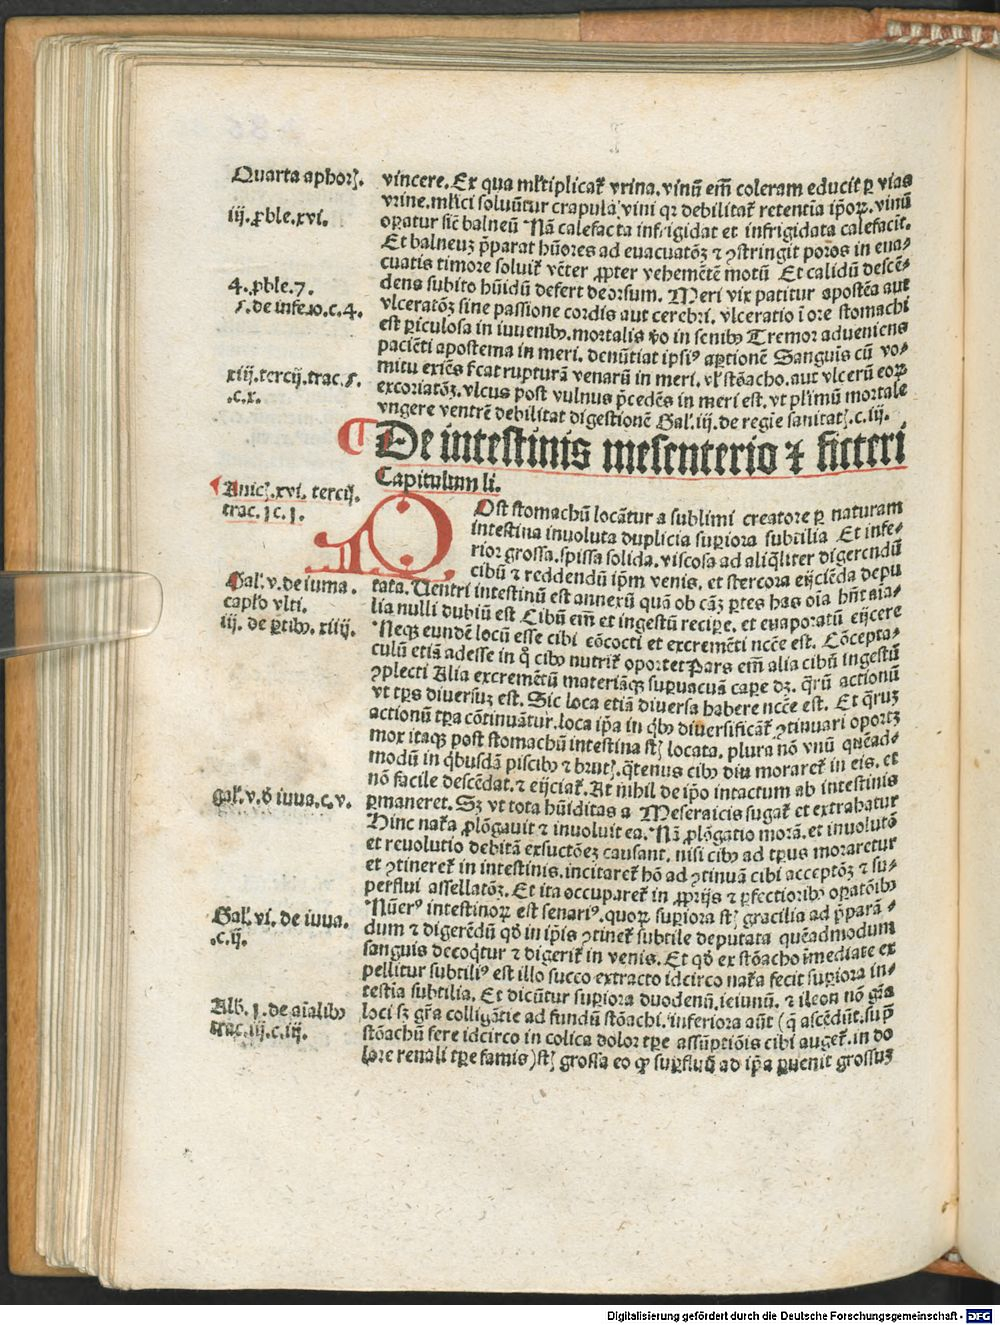 Quarta aphorꝫ.
iij. ꝓble.xvi.
4. ꝓble.7.
.c.4.
xiij.tercij.trac.
.c.x.
vincere. Ex qua mľtiplicat᷑ vrina. vinū em̄ coleram educit ꝑ vias
vrine. soluūtur crapula vini qꝛ debilitat᷑ retentia ip̄oꝝ. vinū
oꝑatur sic̄ balneū Nā calefacta infrigidat et infrigidata calefacit.
Et balneuꝫ p̄parat hūores ad euacuatōꝫ ⁊ ꝯstringit poros in eua⸗
cuatis timore soluit᷑ vēter ꝓpter vehemētē motū Et calidū descē⸗
dens subito hūidū defert deorsum. Meri vix patitur apostēa aut
vlceratōꝫ sine passione cordis aut cerebri. vlceratio ī ore stomachi
est ꝑiculosa in iuuenibꝰ. mortalis ꝟo in senibꝰ Tremor adueniens
paciēti apostema in meri. denūtiat ipsiꝰ aꝑtionē Sanguis cū vo⸗
mitu exiēs rupturā venarū in meri. vľ stōacho. aut vlcerū eoꝝ
excoriatōꝫ. vlcus post vulnus p̄cedēs in meri est. vt pľimū mortale
vngere ventrē debilitat digestionē Gaľ. iij. de regīe sanitatꝫ. c. iij.
¶ De intestinis mesenterio ⁊ sicteri
Capitulum li.
Auicꝫ. xvi. tercij.
trac. c.
Gaľ. v. de iuma.
caplo vlti.
iij. de ꝑtibꝰ. xiiij.
gaľ. v. iuua. c. v.
Gaľ. vi. de iuua.
.c. ij.
Alb. de aīalibꝰ
trac. iij. c. iij.
POst stomachū locātur a sublimi creatore ꝑ naturam
intestina inuoluta duplicia suꝑiora subtilia Et infe⸗
rior grossa. spissa solida. viscosa ad aliq̄liter digerendū
cibū ⁊ reddendū ip̄m venis. et stercora eijciēda depu
tata. Uentri intestinū est annexū quā ob cāꝫ ꝑtes has oīa hn̄t aīa⸗
lia nulli dubiū est Cibū em̄ et ingestū recipe. et euaporatū eijcere
Neqꝫ eundē locū esse cibi cōcocti et excremēti ncc̄e est. Cōcepta⸗
culū etiā adesse in q̊ cibꝰ nutrit᷑ oportet Pars em̄ alia cibū ingestū
ꝯplecti Alia excremētū materiāqꝫ suꝑuacuā caꝑe dꝫ. q̄rū actionū
vt tp̄s diuersuꝫ est. Sic loca etiā diuersa habere ncc̄e est. Et q̄ruꝫ
actionū tꝑa cōtinuātur. loca ip̄a in q̊bꝰ diuersificāt᷑ ꝯtinuari oportꝫ
mox itaqꝫ post stomachū intestina stꝫ locata. plura nō vnū quēad⸗
modū in q̊busdā piscibꝰ ⁊ brutꝫ. q̄tenus cibꝰ diu moraret᷑ in eis. et
nō facile descēdat. ⁊ eijciat᷑. At nihil de ip̄o intactum ab intestinis
ꝑmaneret. Sꝫ vt tota hūiditas a Meseraicis sugat᷑ et extrahatur
Hinc nat᷑a ꝓlōgauit ⁊ inuoluit ea. Nā ꝓlōgatio morā. et inuolutō
et reuolutio debitā exsuctōeꝫ causant. nisi cibꝰ ad tp̄us moraretur
et ꝯtineret᷑ in intestinis. incitaret᷑ hō ad ꝯtinuā cibi acceptōꝫ ⁊ su⸗
perflui assellatōꝫ. Et ita occuparet᷑ in ꝓprijs ⁊ ꝑfectioribꝰ oꝑatōibꝰ
Nūerꝰ intestinoꝝ est senariꝰ. quoꝝ suꝑiora stꝫ gracilia ad p̄parā⸗
dum ⁊ digerēdū qđ in ip̄is ꝯtinet᷑ subtile deputata quēadmodum
sanguis decoq̄tur ⁊ digerit᷑ in venis. Et qđ ex stōacho īmediate ex
pellitur subtiliꝰ est illo succo extracto idcirco nat᷑a fecit suꝑiora in⸗
testīa subtilia. Et dicūtur suꝑiora duodenū. ieiunū. ⁊ ileon nō gr̄a
loci sꝫ gr̄a colligātie ad fundū stōachi. inferiora aūt (q̄ ascēdūt. sup̄
stōachū fere idcirco in colica dolor tꝑe assūptiōis cibi auget᷑. in do
lore renali tꝑe famis) stꝫ grossa eo ꝙ suꝑfluū ad ip̄a ꝑuenit grossuꝫ
Digitalisierung gefördert durch die Deutsche Forschungsgemeinschaft - DFG